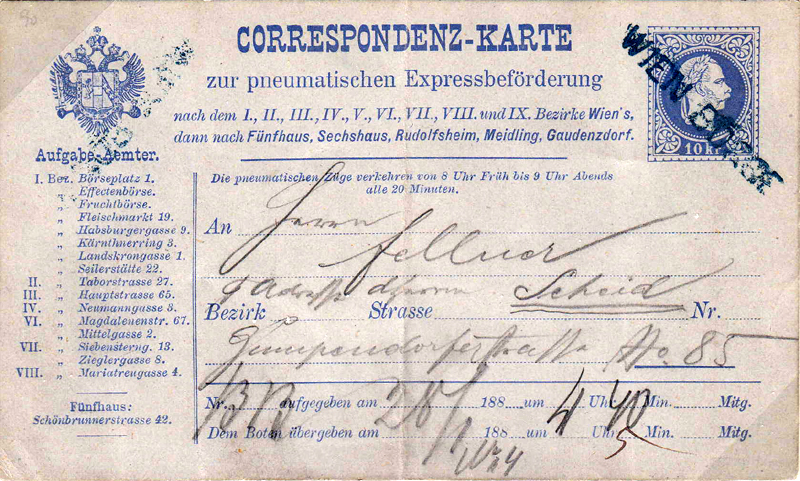 CORRESPONDENZ-KARTE
zur pneumatischen Expressbeförderung
nach dem I., II., III., IV., V., VI., VII., VIII. und IX. Bezirke Wien's,
dann nach Fünfhaus, Sechshaus, Rudolfsheim, Meidling, Gaudenzdorf.
10 kr.
WIEN BÖRSE
Aufgabe-Aemter.
I. Bez. Börseplatz 1.
„ Effectenbörse.
„ Fruchtbörse.
„ Fleischmarkt 19.
„ Habsburgergasse 9.
„ Kärnthnerring 3.
„ Landskrongasse 1.
„ Seilerstätte 22.
II. „ Taborstrasse 27.
III. „ Hauptstrasse 65.
IV. „ Neumanngasse 3.
VI. „ Magdalenenstr. 67.
„ Mittelgasse 2.
VII. „ Siebensterng. 13.
„ Zieglergasse 8.
VIII. „ Mariatreugasse 4.
Fünfhaus:
Schönbrunnerstrasse 42.
Die pneumatischen Züge verkehren von 8 Uhr Früh bis 9 Uhr Abends
alle 20 Minuten.
An Herrn
Fellner
Adresse Herrn Scheid
Bezirk Strasse Nr.
Gumpendorferstrasse No. 85
Nr. aufgegeben am 188 um 4 Uhr 40 Min. Mitg.
Dem Boten übergeben am 188 um Uhr 5 Min. Mitg.